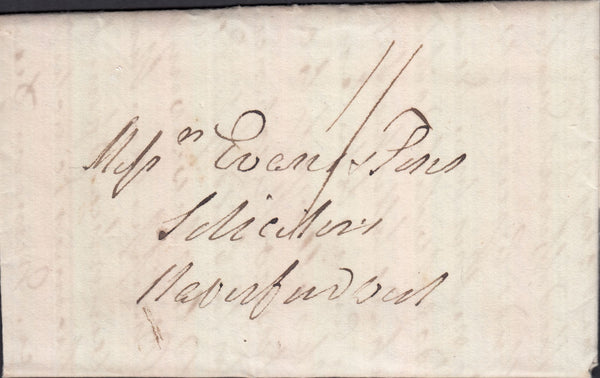 11
Messrs Evans & Sons
Solicitors
Haverfordwest